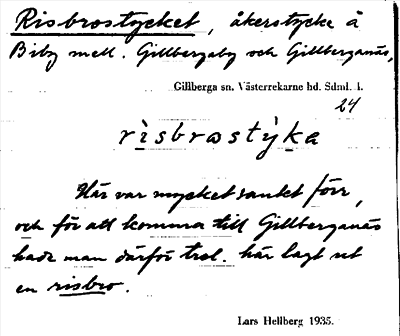 Risbrostycket, åkerstycke å
Biby mell. Gillbergaby och Gillberganäs,
Gillberga sn. Västerrekarne hd. Sdml. l.
24
rìsbrostỳka
Här var mycket sankt förr,
och för att komma till Gillberganäs
hade man därför trol. här lagt ut
en risbro.
Lars Hellberg 1935.